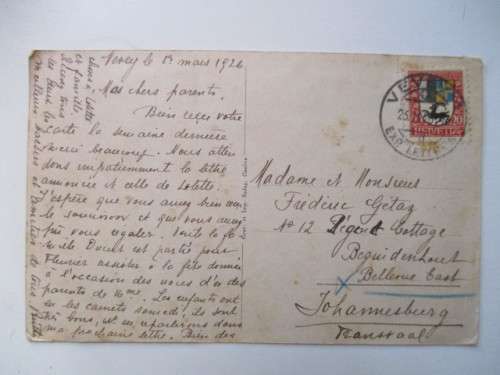 Vevey le 1r mars 1926
Mes chers parents.
Bien reçu votre
carte la semaine dernière
merci beaucoup. Nous atten
dons impatiemment la lettre
annoncée et celle de Lolette.
J'espère que vous aurez bien eu
le et que vous aurez
pu vous régaler. Toute la fa
mille est partie pour
Fleurier assister à la fête donnée
à l'occasion des noces d'or des
parents de Mme. Les enfants ont
eu les carnets samedi, ils sont
très bons, nous en reparlerons dans
ma prochaine lettre. Bien des
choses à Lolette
et famille.
Recevez tous
les deux les
meilleurs baisers et
Madame et Monsieur
Frédéric Getaz
No 12 Cottage
Bezuidenhout
Bellevue East
Johannesburg
Transvaal
VEVEY
EXP. LETTRES
HELVETIA
20